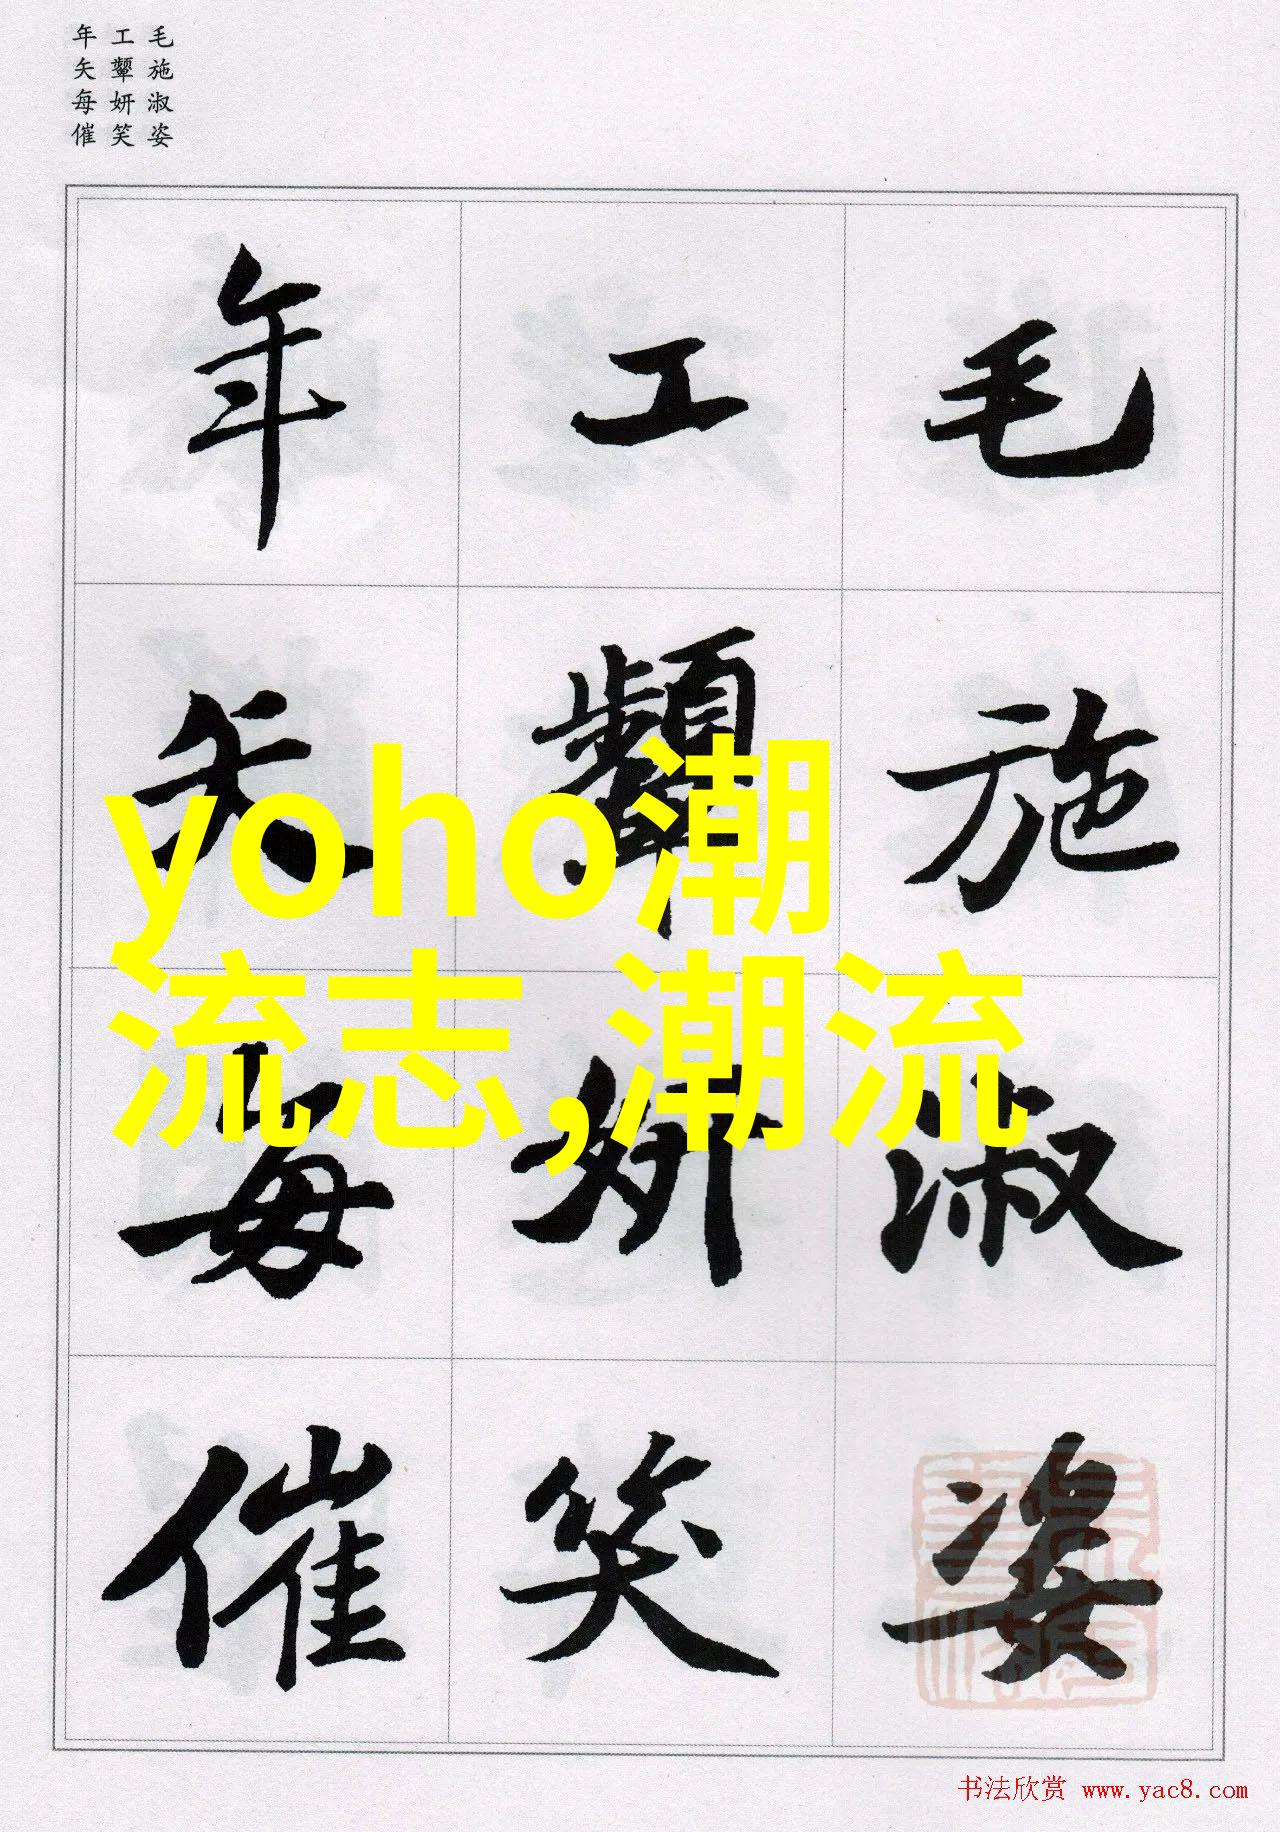 毛施淑姿
工顰妍笑
年矢每催
毛施淑姿
工顰妍笑
年矢每催
yoho潮
流志,潮流
书法欣赏 www.yac8.com